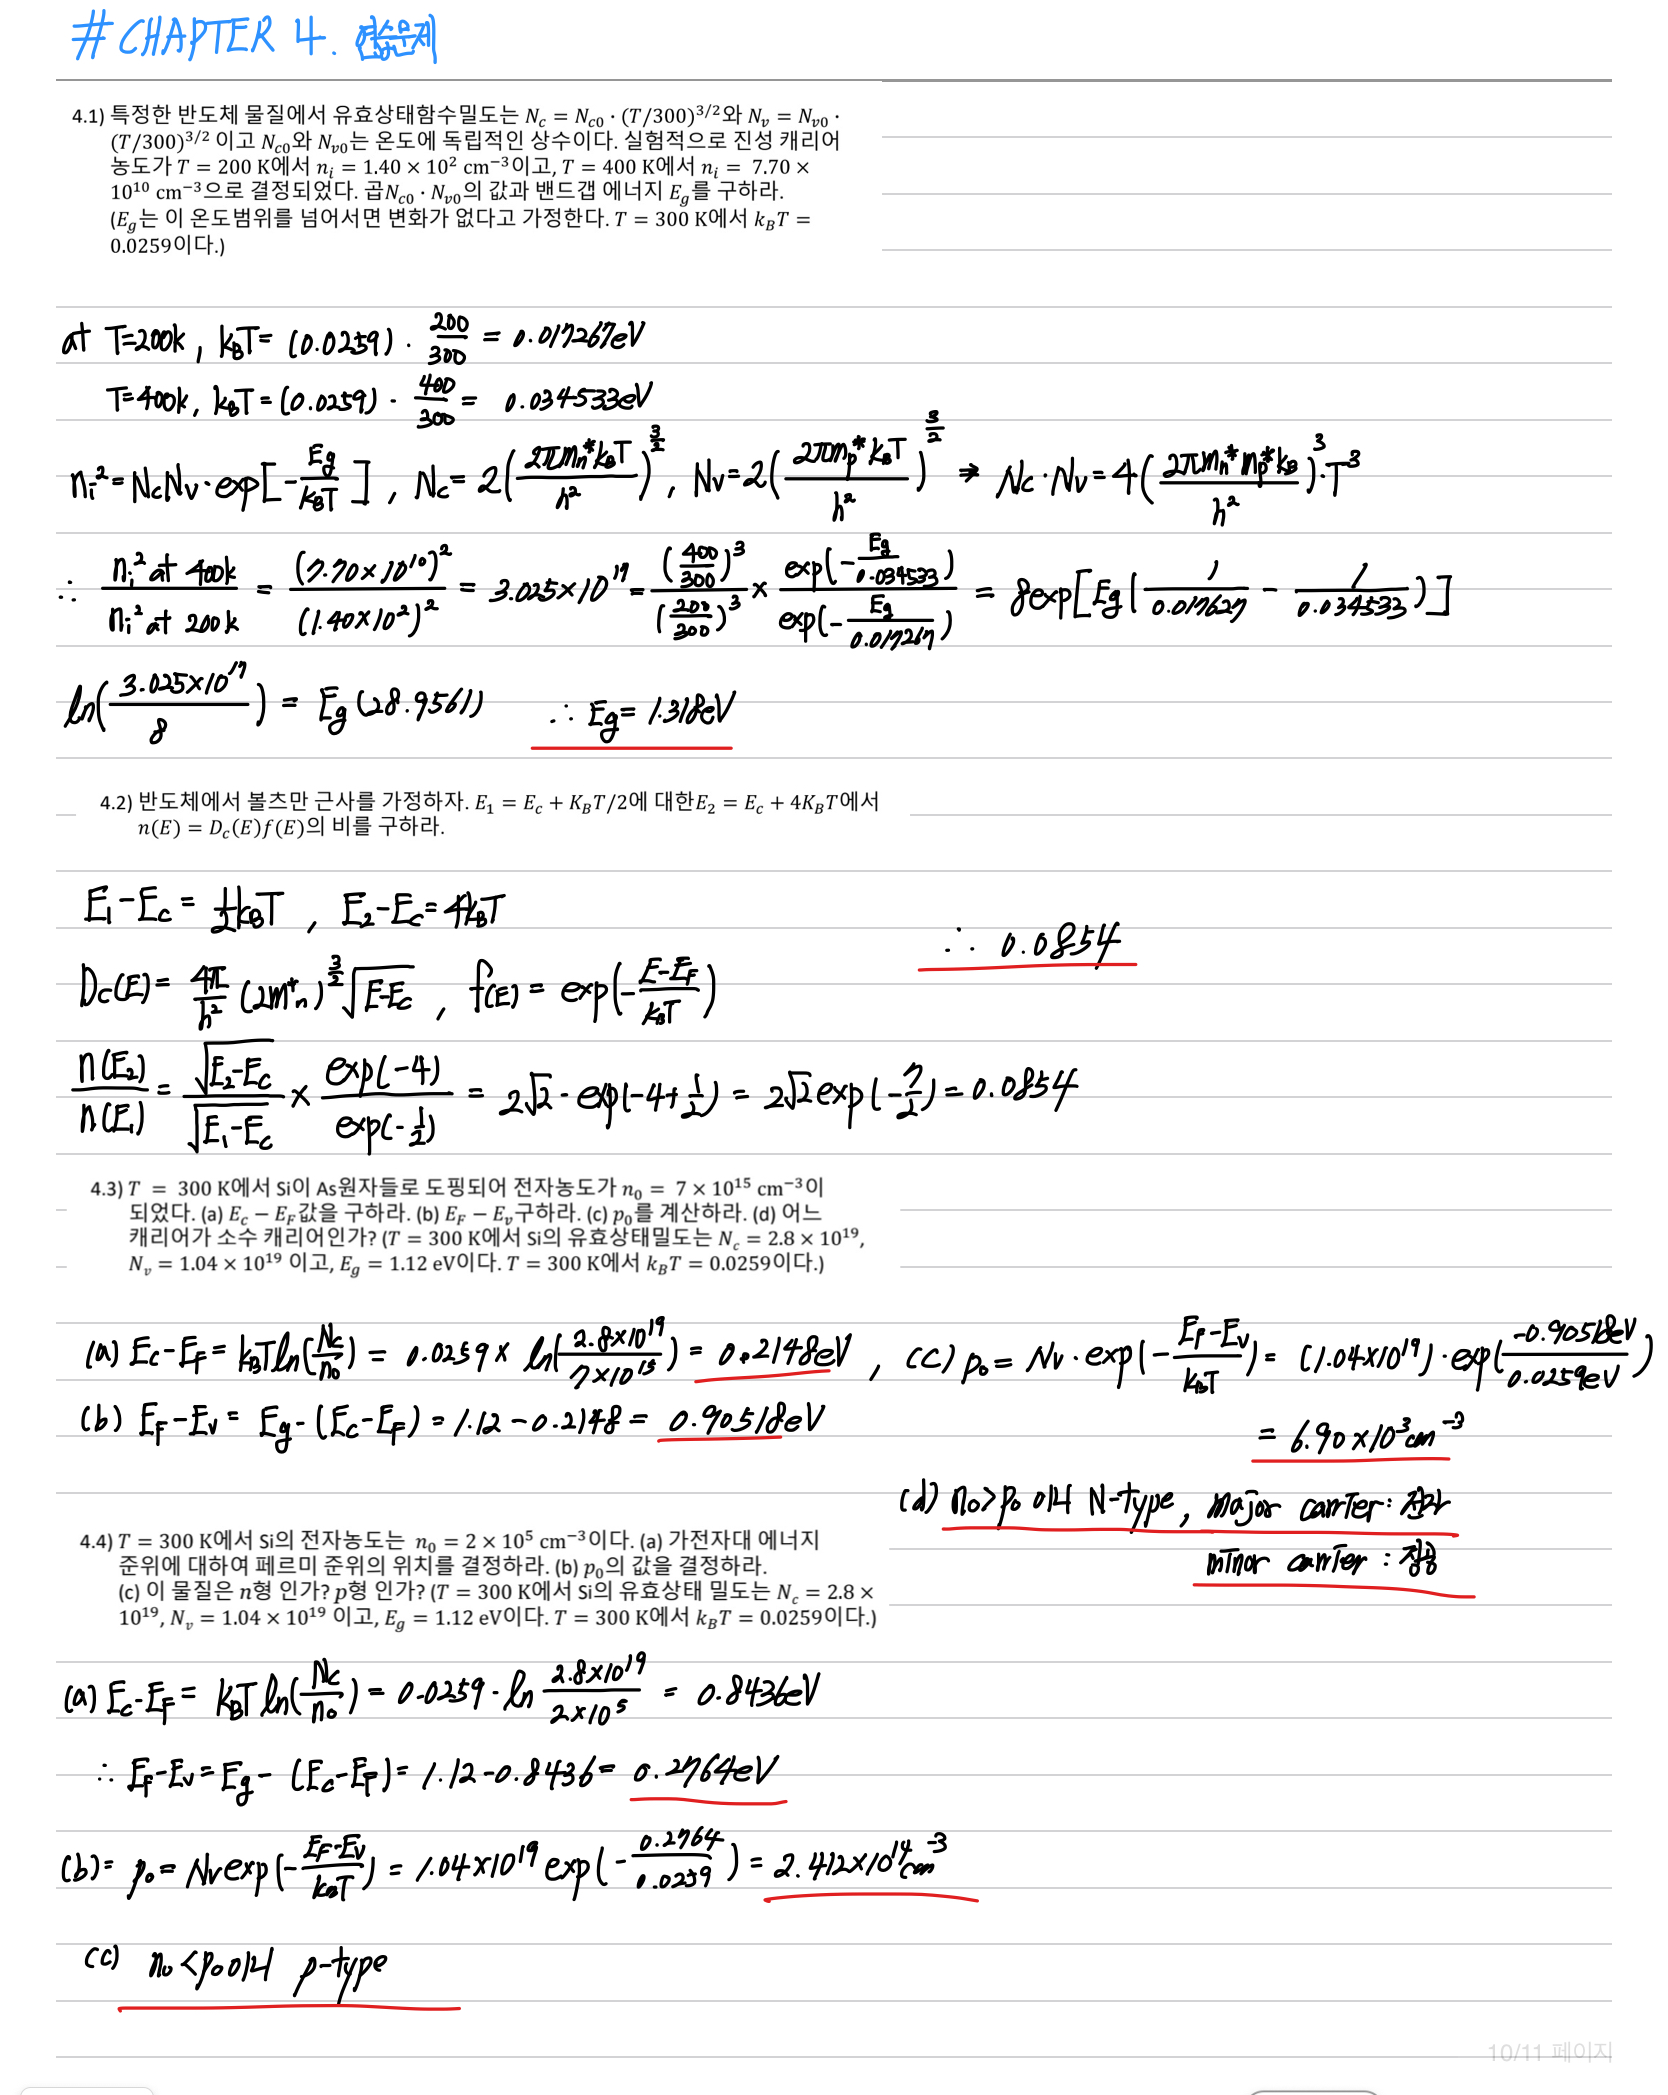 #CHAPTER 4. 연습문제
4.1) 특정한 반도체 물질에서 유효상태함수밀도는 N_c = N_c0 · (T/300)^3/2와 N_v = N_v0 ·
(T/300)^3/2 이고 N_c0와 N_v0는 온도에 독립적인 상수이다. 실험적으로 진성 캐리어
농도가 T = 200 K에서 n_i = 1.40 × 10^2 cm^−3이고, T = 400 K에서 n_i = 7.70 ×
10^10 cm^−3으로 결정되었다. 곱N_c0 · N_v0의 값과 밴드갭 에너지 E_g를 구하라.
(E_g는 이 온도범위를 넘어서면 변화가 없다고 가정한다. T = 300 K에서 k_BT =
0.0259이다.)
at T=200k, k_BT= (0.0259) · 200/300 = 0.017267eV
T=400k, k_BT = (0.0259) · 400/300 = 0.034533eV
n_i^2 = N_cN_v · exp[-E_g/k_BT], N_c = 2(2πm_n^*k_BT/h^2)^3/2, N_v = 2(2πm_p^*k_BT/h^2)^3/2 ⇒ N_c·N_v = 4(2πm_n^*m_p^*k_B/h^2)^3·T^3
∴ n_i^2 at 400k / n_i^2 at 200k = (7.70×10^10)^2 / (1.40×10^2)^2 = 3.025×10^17 = (400/300)^3 / (200/300)^3 × exp(-E_g/0.034533) / exp(-E_g/0.017267) = 8exp[E_g(1/0.017627 - 1/0.034533)]
ln(3.025×10^17 / 8) = E_g(28.9561) ∴ E_g = 1.318eV
4.2) 반도체에서 볼츠만 근사를 가정하자. E_1 = E_c + K_BT/2에 대한E_2 = E_c + 4K_BT에서
n(E) = D_c(E)f(E)의 비를 구하라.
E_1-E_c = 1/2 k_BT, E_2-E_c = 4k_BT
∴ 0.0854
D_c(E) = 4π/h^2 (2m^*_n)^3/2 √(E-E_c), f(E) = exp(-(E-E_F)/k_BT)
n(E_2)/n(E_1) = √(E_2-E_c)/√(E_1-E_c) × exp(-4)/exp(-1/2) = 2√2 · exp(-4+1/2) = 2√2 exp(-7/2) = 0.0854
4.3) T = 300 K에서 Si이 As원자들로 도핑되어 전자농도가 n_0 = 7 × 10^15 cm^−3이
되었다. (a) E_c − E_F값을 구하라. (b) E_F − E_v구하라. (c) p_0를 계산하라. (d) 어느
캐리어가 소수 캐리어인가? (T = 300 K에서 Si의 유효상태밀도는 N_c = 2.8 × 10^19,
N_v = 1.04 × 10^19 이고, E_g = 1.12 eV이다. T = 300 K에서 k_BT = 0.0259이다.)
(a) E_c-E_F = k_BT ln(N_c/n_0) = 0.0259 × ln(2.8×10^19 / 7×10^15) = 0.2148eV, (c) p_0 = N_v · exp(-(E_F-E_v)/k_BT) = (1.04×10^19) · exp(-0.90518eV / 0.0259eV)
(b) E_F-E_v = E_g-(E_c-E_F) = 1.12-0.2148 = 0.90518eV
= 6.90×10^3 cm^-3
(d) n_0>p_0 이니 N-type, major carrier: 전자
minor carrier : 정공
4.4) T = 300 K에서 Si의 전자농도는 n_0 = 2 × 10^5 cm^−3이다. (a) 가전자대 에너지
준위에 대하여 페르미 준위의 위치를 결정하라. (b) p_0의 값을 결정하라.
(c) 이 물질은 n형 인가? p형 인가? (T = 300 K에서 Si의 유효상태 밀도는 N_c = 2.8 ×
10^19, N_v = 1.04 × 10^19 이고, E_g = 1.12 eV이다. T = 300 K에서 k_BT = 0.0259이다.)
(a) E_c-E_F = k_BT ln(N_c/n_0) = 0.0259 · ln 2.8×10^19 / 2×10^5 = 0.8436eV
∴ E_F-E_v = E_g - (E_c-E_F) = 1.12-0.8436 = 0.2764eV
(b)= p_0 = N_v exp(-(E_F-E_v)/k_BT) = 1.04×10^19 exp(-0.2764/0.0259) = 2.412×10^14 cm^-3
(c) n_0<p_0 이니 p-type
10/11 페이지